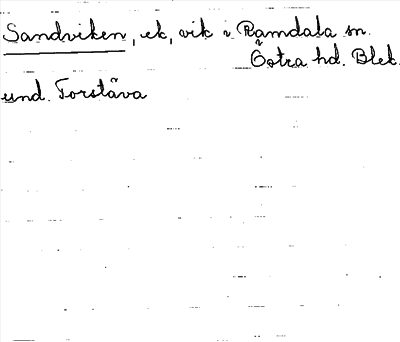 Sandviken, ek, vik i Ramdala sn.
Östra hd. Blek.
und. Torstäva